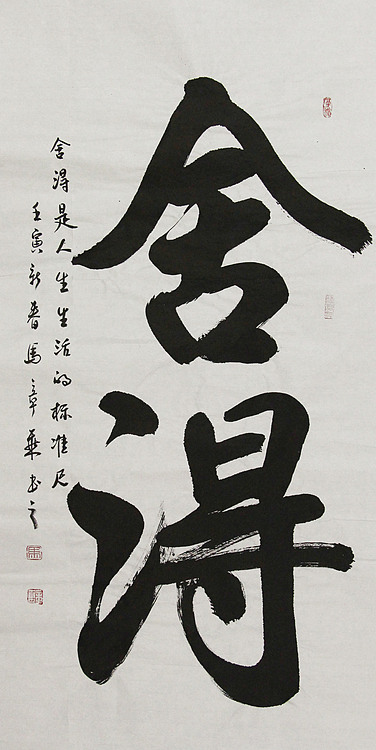 舍得
舍得是人生生活的标准尺
壬寅新春馬章乘书之